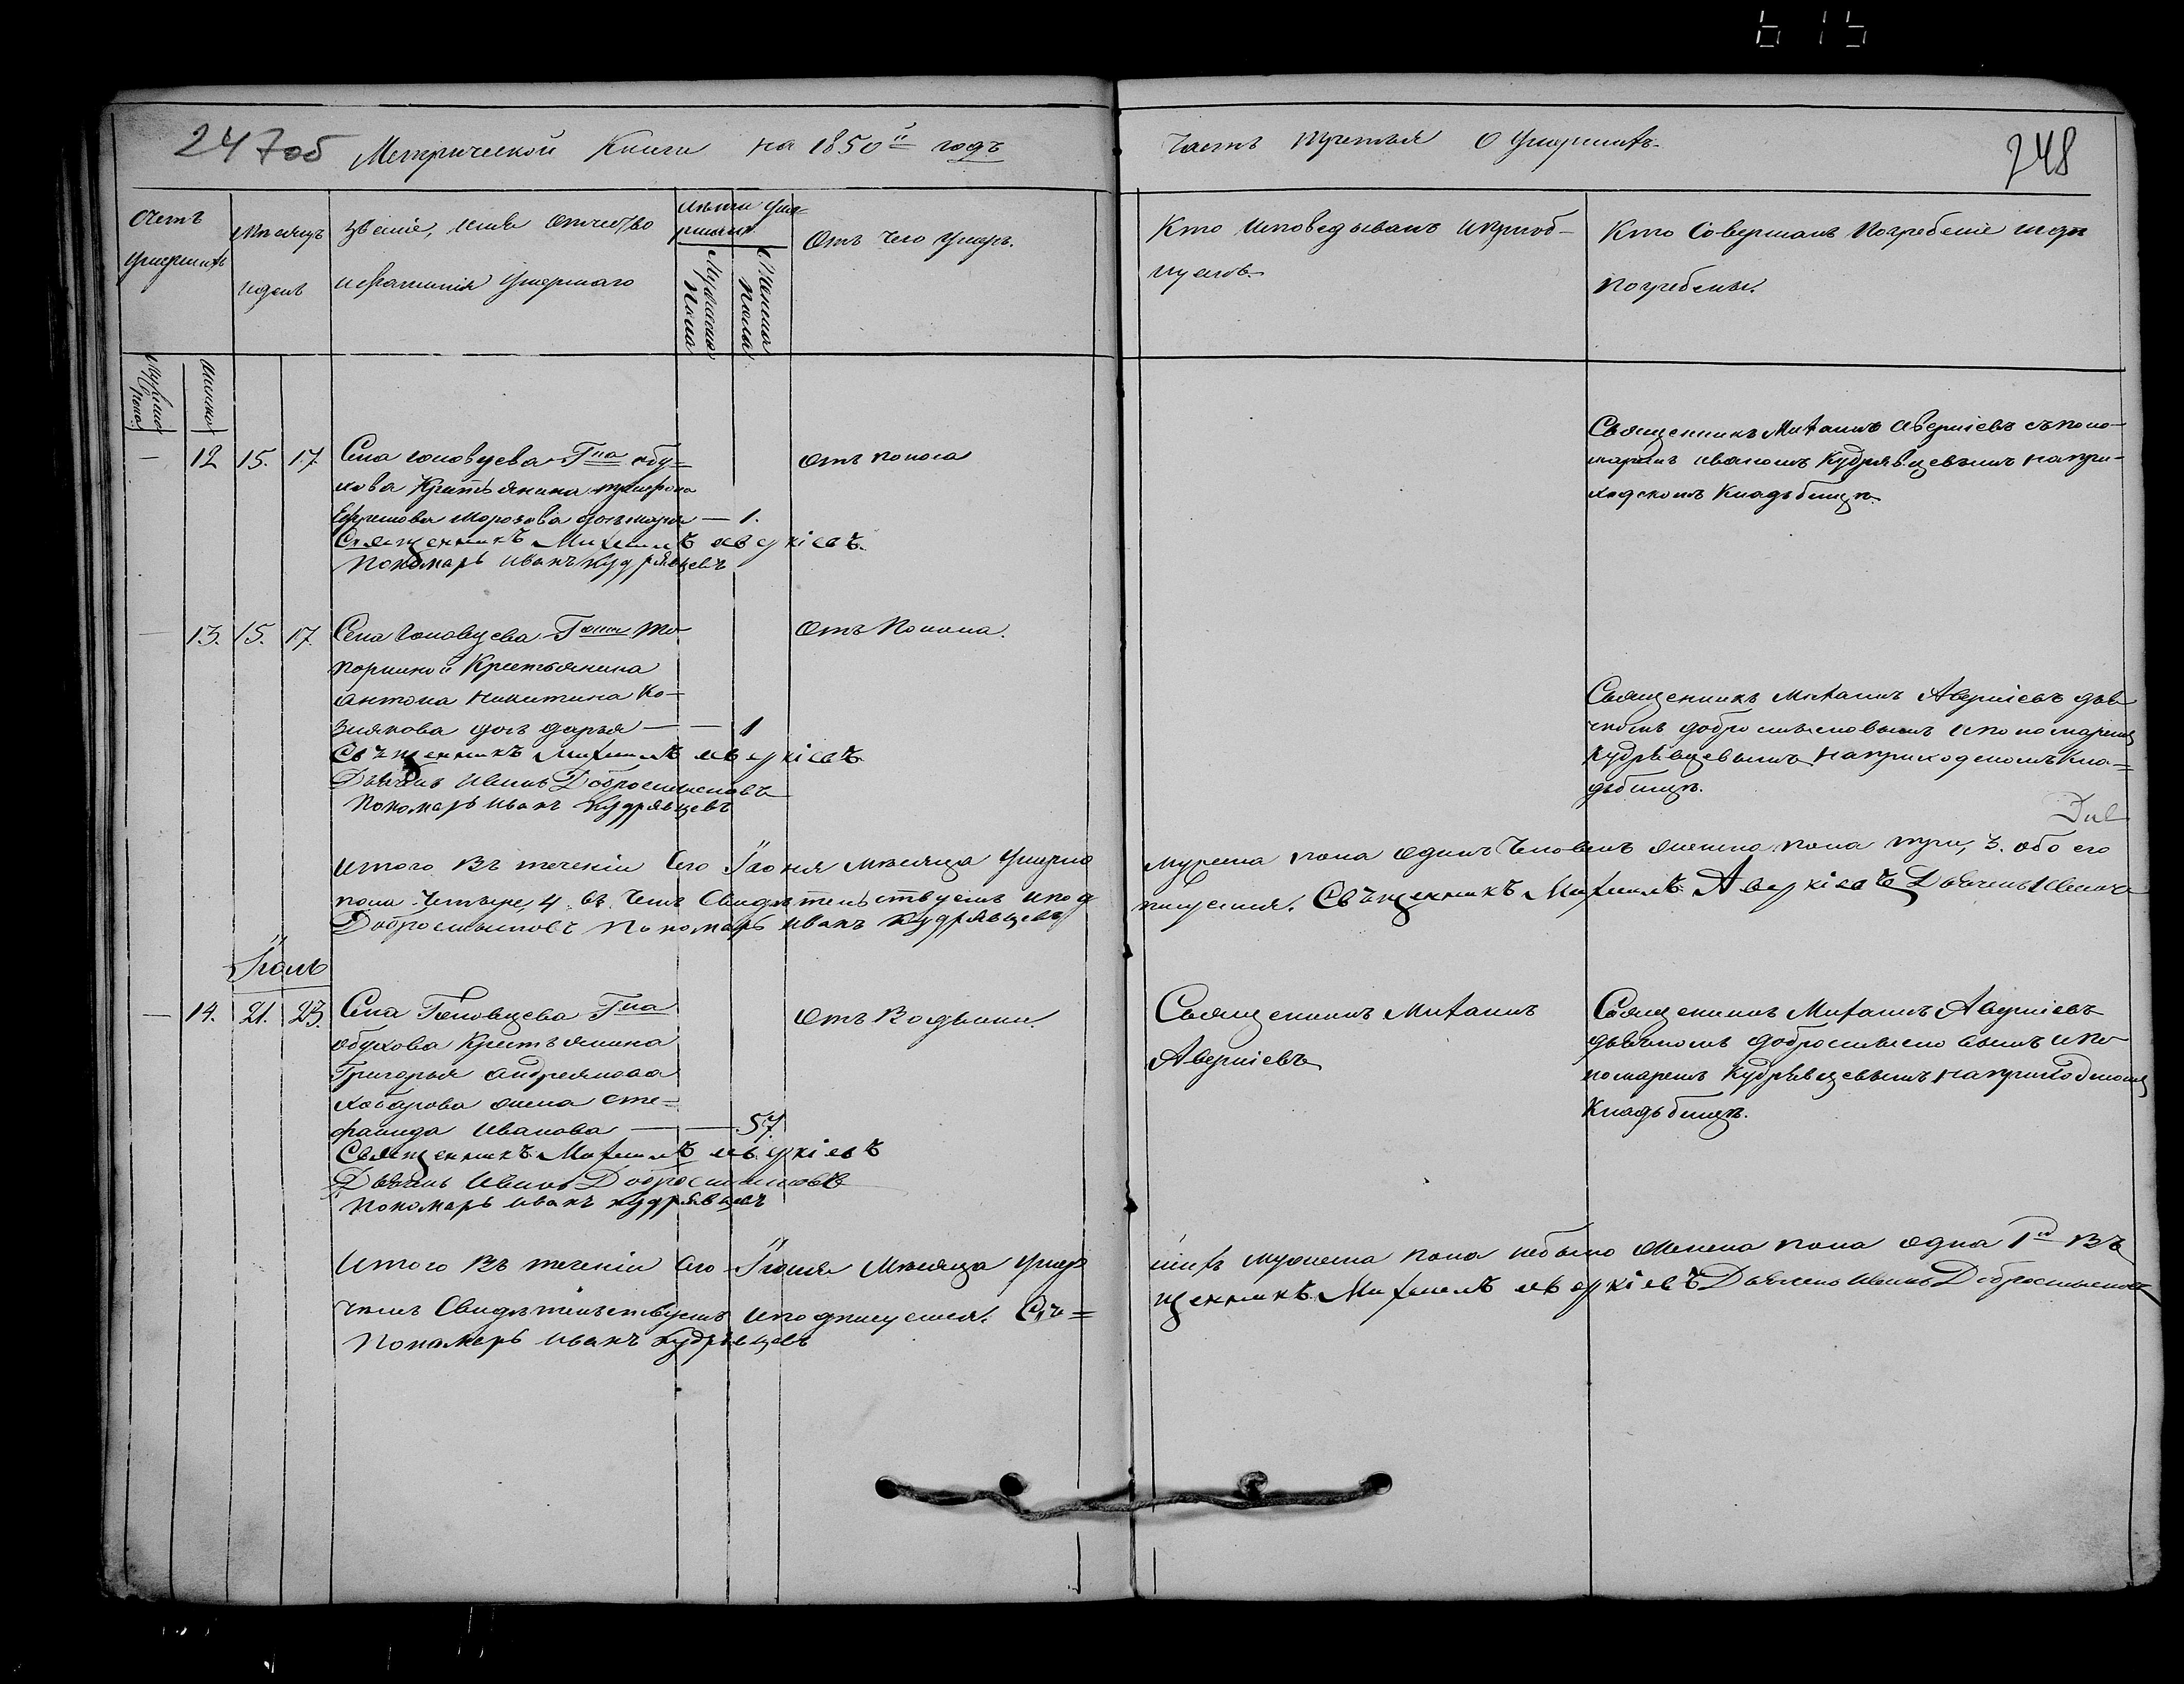 247об Метрической Книги на 1850й годъ
Часть третья О Умершихъ
248
Счетъ умершихъ
Мѣсяцъ и день
Званіе, имя отчество
и фамилія Умершаго
Лѣта Умершихъ
Мужеска Пола
Женска Пола
Отъ Чего Умеръ.
Кто Исповедывалъ и приоб-
щалъ
Кто Совершалъ Погребеніе и гдѣ
Погребены.
Мужеска Пола
Женска
— 12 15. 17. Села Головцева Гна Обу=
хова Крестьянина
Ефремова Морозова дочь — 1.
Отъ поноса
Священникъ Михаилъ Аверкіевъ
Пономарь Иванъ Кудрявцевъ
Священникъ Михаилъ Аверкіевъ съ поно-
маремъ Иваномъ Кудрявцевымъ на при-
ходскомъ Кладьбищѣ
— 13. 15. 17. Села Головцева
Крестьянина
Антона Никитина Ко-
зкова дочь Дарья — — 1
Отъ Поноса.
Священникъ Михаилъ Аверкіевъ
Дьячекъ Иванъ Добросмысловъ
Пономарь Иванъ Кудрявцевъ
Священникъ Михаилъ Аверкіевъ дья-
чкомъ Добросмысловымъ и пономаремъ
Кудрявцевымъ на приходскомъ Кла=
дьбищѣ.
Итого Въ теченіи Сего Іюня мѣсяца Умерло
мужеска пола одинъ Человекъ женска пола три, 3. обоего
пола Четыре, 4. въ Чемъ Свидѣтельствуемъ и под
писуемся. Священникъ Михаилъ Аверкіевъ Дьячекъ Иванъ
Добросмысловъ Пономарь Иванъ Кудрявцевъ
Іюль
— 14. 21. 23. Села Головцева Гна
Обухова Крестьянина
Григорья Андреянова
Хабарова жена Сте=
фанида Иванова — — 57.
Отъ Водяни.
Священникъ Михаилъ Аверкіевъ
Дьячекъ Иванъ Добросмысловъ
Пономарь Иванъ Кудрявцевъ
Священникъ Михаилъ
Аверкіевъ
Священникъ Михаилъ Аверкіевъ
дьячкомъ Добросмысловымъ и по-
номаремъ Кудрявцевымъ на приходскомъ
Кладьбищѣ.
Итого Въ теченіи Сего Іюля Мѣсяца Умер
шихъ мужеска пола небыло Женска пола одна 1а Въ
чемъ Свидѣтельствуемъ и подписуемся. Свя=
щенникъ Михаилъ Аверкіевъ Дьячекъ Иванъ Добросмысловъ
Пономарь Иванъ Кудрявцевъ